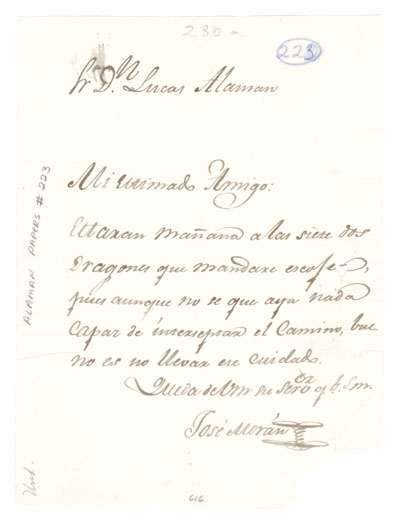 280 a
223
Sr. D.n Lucas Alaman
Mi estimado Amigo:
Estaran mañana a las siete dos
Dragones que mandare escojer,
pues aunque no se que aya nada
capaz de interseptar el Camino, bue
no es no llevar ese cuidado.
Queda de Vm su ser.or q. b. s. m.
José Morán
ALAMAN PAPERS # 223
Und.
616